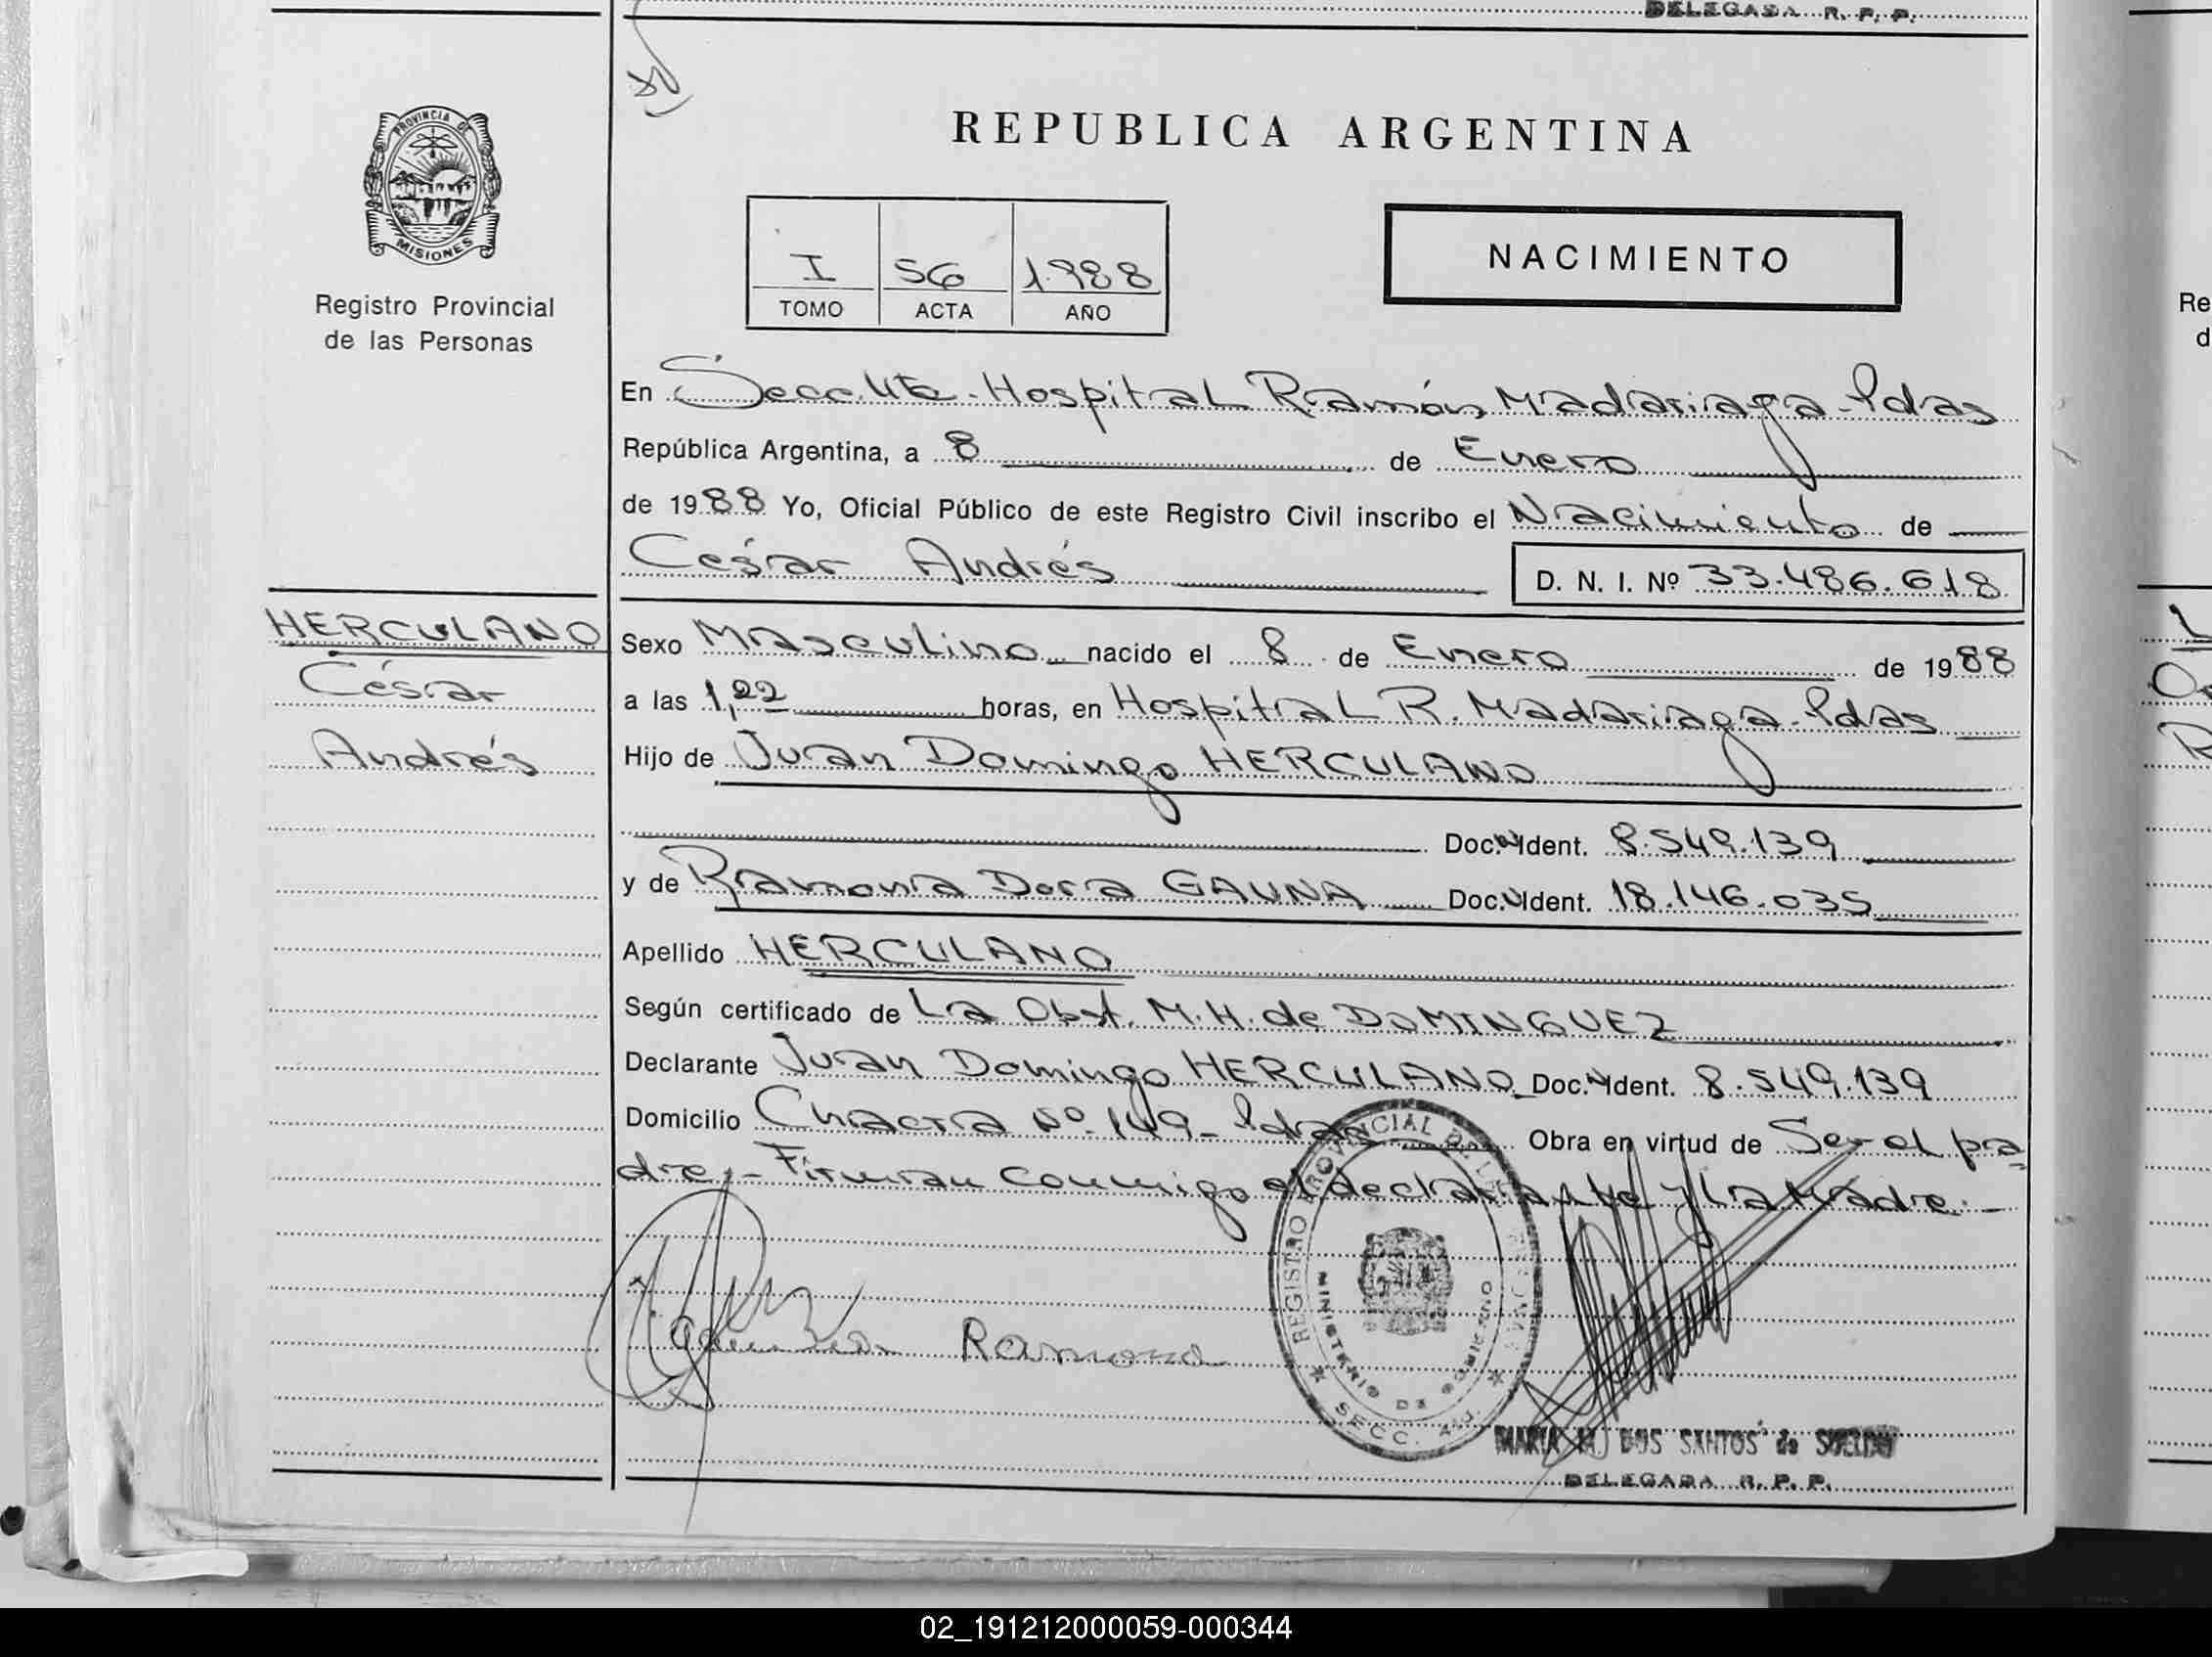 DELEGADA R. P. P.
PROVINCIA DE
MISIONES
Registro Provincial
de las Personas
REPUBLICA ARGENTINA
I 56 1988
TOMO ACTA AÑO
NACIMIENTO
En Secc. 4ta. Hospital Ramón Madariaga - Pdas
República Argentina, a 8 de Enero
de 1988 Yo, Oficial Público de este Registro Civil inscribo el Nacimiento de
César Andrés D. N. I. Nº 33.486.618
HERCULANO
César
Andrés
Sexo Masculino nacido el 8 de Enero de 1988
a las 1,22 horas, en Hospital R. Madariaga - Pdas
Hijo de Juan Domingo HERCULANO
Doc. N Ident. 8.549.139
y de Ramona Dora GAUNA Doc. N Ident. 18.146.035
Apellido HERCULANO
Según certificado de La Obst. M. H. de DOMINGUEZ
Declarante Juan Domingo HERCULANO Doc. N Ident. 8.549.139
Domicilio Chacra Nº 149 - Pdas Obra en virtud de Ser el pa-
dre.- Firman conmigo el declarante y la Madre.-
Ramona
REGISTRO PROVINCIAL DE
MINISTERIO DE GOBIERNO
SECC. 4
MARIA M. DOS SANTOS de SUELDO
DELEGADA R. P. P.
Re
d
02_191212000059-000344